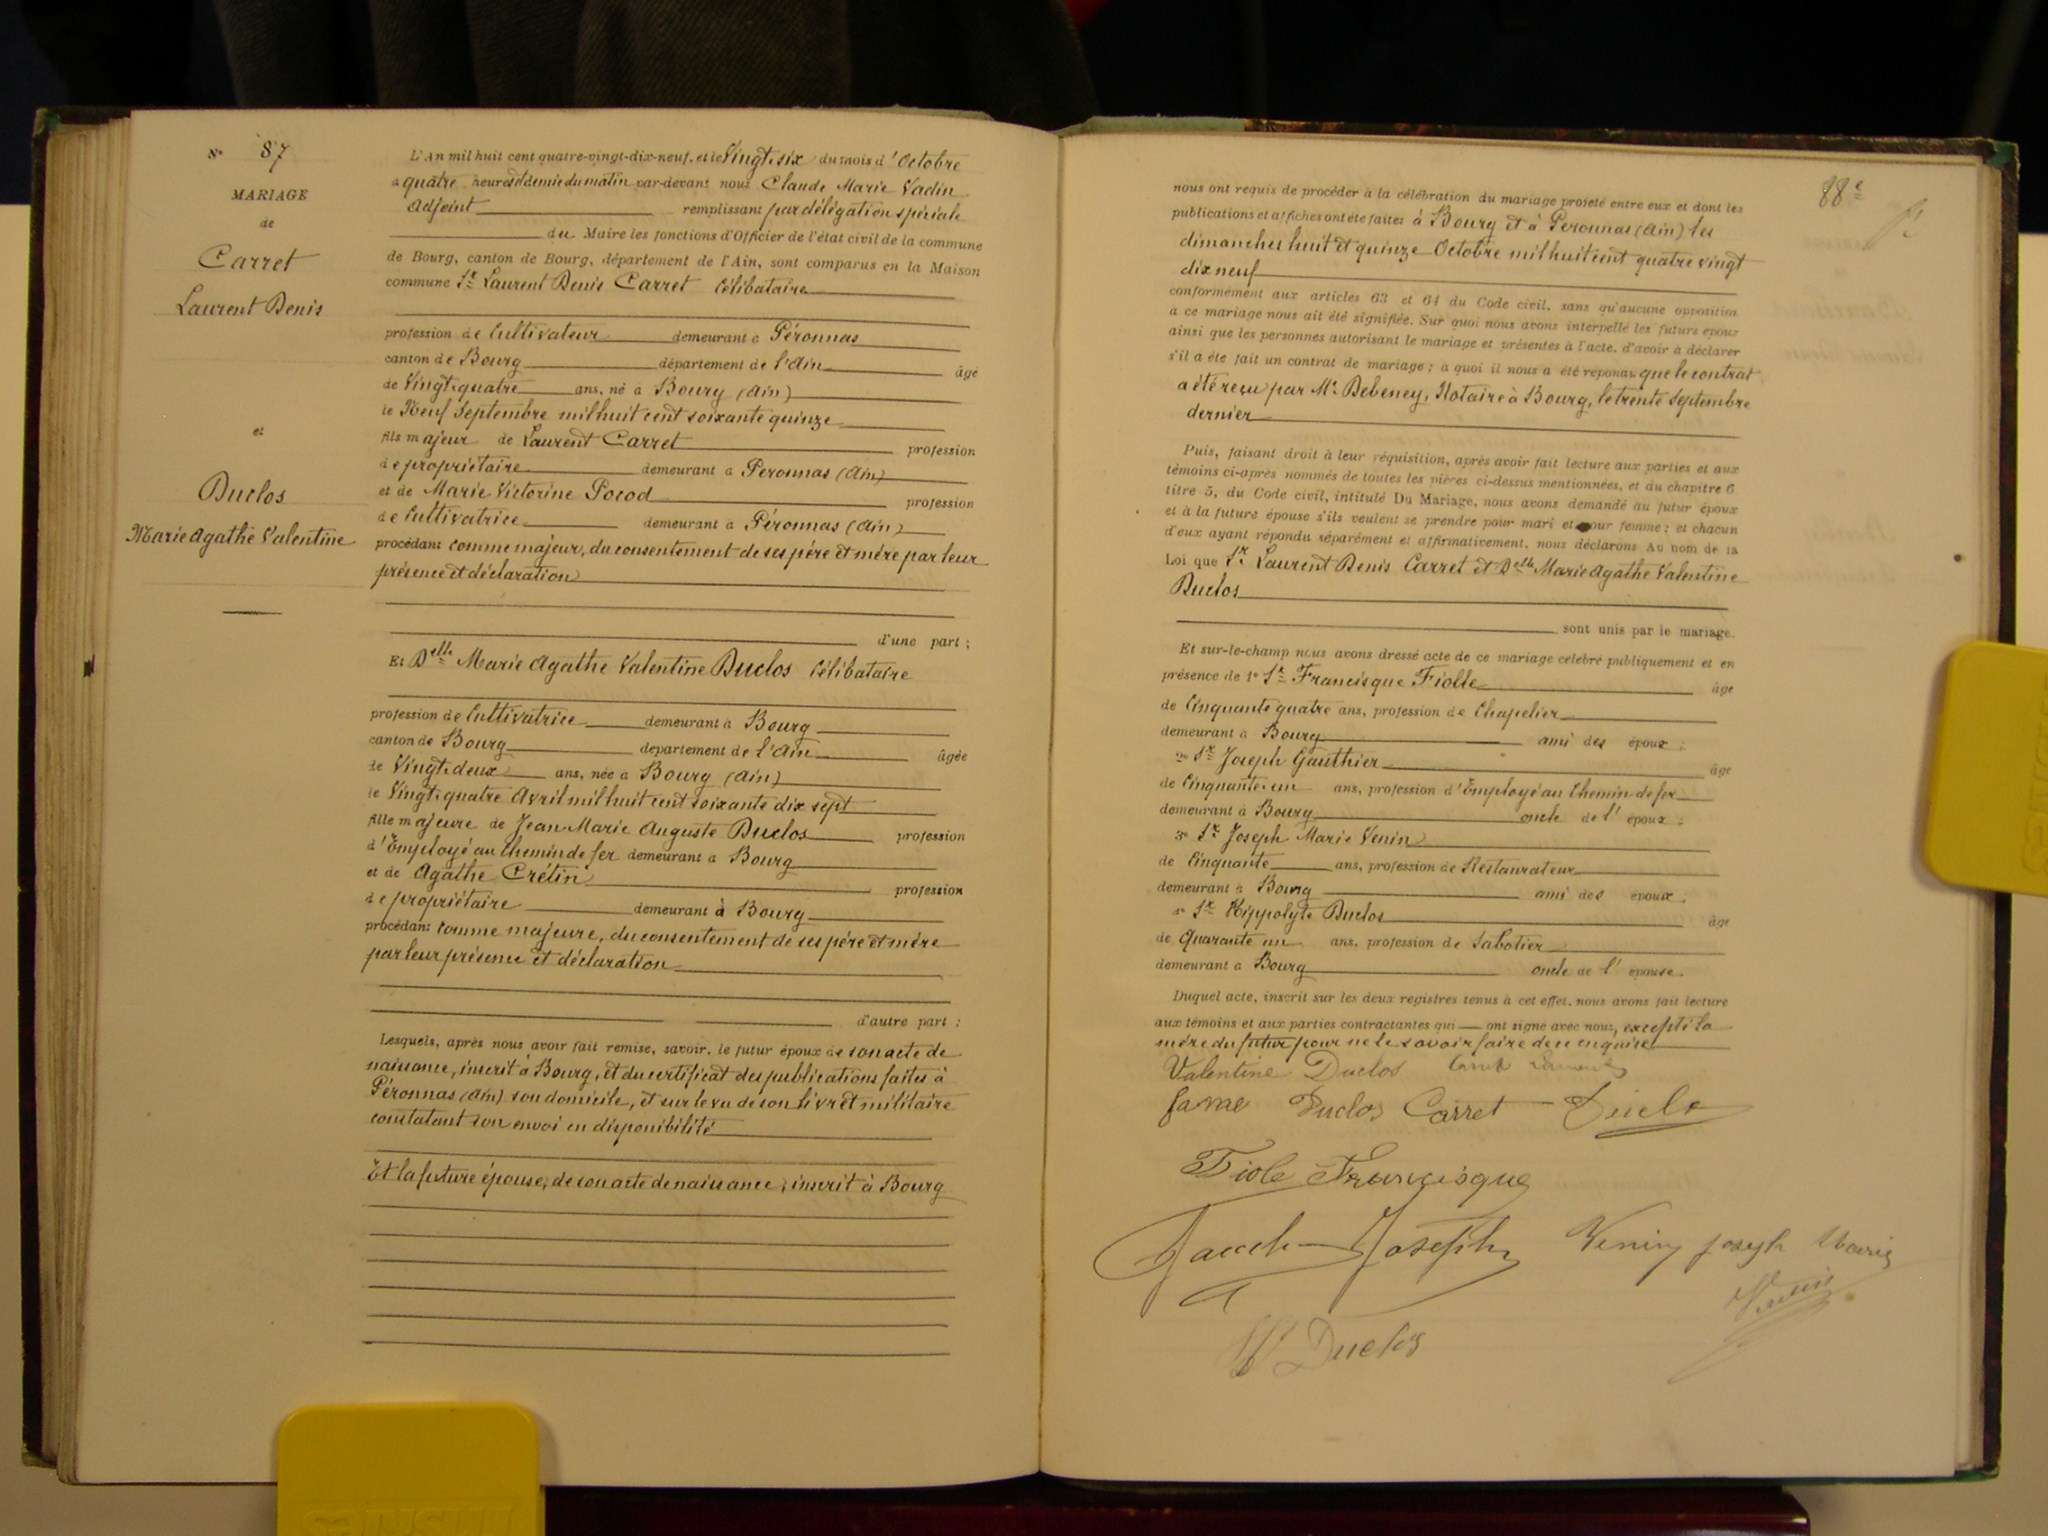 N° 87
MARIAGE
de
Carret
Laurent Denis
et
Duclos
Marie Agathe Valentine
L'An mil huit cent quatre-vingt-dix-neuf, et le Vingt-six du mois d'Octobre
à quatre heures et demie du matin par-devant nous Claude Marie Vadin
Adjoint remplissant par délégation spéciale
du Maire les fonctions d'Officier de l'état civil de la commune
de Bourg, canton de Bourg, département de l'Ain, sont comparus en la Maison
commune Sr Laurent Denis Carret Célibataire
profession de Cultivateur demeurant à Péronnas
canton de Bourg département de l'Ain âgé
de Vingt-quatre ans, né à Bourg (Ain)
le Neuf Septembre mil huit cent soixante quinze
fils majeur de Laurent Carret profession
de propriétaire demeurant à Péronnas (Ain)
et de Marie Victorine Pocod profession
de Cultivatrice demeurant à Péronnas (Ain)
procédant comme majeur, du consentement de ses père et mère par leur
présence et déclaration
d'une part ;
Et Delle Marie Agathe Valentine Duclos Célibataire
profession de Cultivatrice demeurant à Bourg
canton de Bourg département de l'Ain âgée
de Vingt-deux ans, née à Bourg (Ain)
le Vingt-quatre Avril mil huit cent soixante dix sept
fille majeure de Jean-Marie Auguste Duclos profession
d'Employé au Chemin de fer demeurant à Bourg
et de Agathe Crétin profession
de propriétaire demeurant à Bourg
procédant comme majeure, du consentement de ses père et mère
par leur présence et déclaration
d'autre part :
Lesquels, après nous avoir fait remise, savoir, le futur époux de son acte de
naissance, inscrit à Bourg, et du certificat des publications faites à
Péronnas (Ain) son domicile, et sur le vu de son livret militaire
constatant son envoi en disponibilité
Et la future épouse, de son acte de naissance, inscrit à Bourg
88e
nous ont requis de procéder à la célébration du mariage projeté entre eux et dont les
publications et affiches ont été faites à Bourg et à Péronnas (Ain) les
dimanches huit et quinze Octobre mil huit cent quatre vingt
dix neuf
conformément aux articles 63 et 64 du Code civil, sans qu'aucune opposition
à ce mariage nous ait été signifiée. Sur quoi nous avons interpellé les futurs époux
ainsi que les personnes autorisant le mariage et présentes à l'acte, d'avoir à déclarer
s'il a été fait un contrat de mariage ; à quoi il nous a été répondu que le contrat
a été reçu par Me Debeney, Notaire à Bourg, le trente Septembre
dernier
Puis, faisant droit à leur réquisition, après avoir fait lecture aux parties et aux
témoins ci-après nommés de toutes les pièces ci-dessus mentionnées, et du chapitre 6
titre 5, du Code civil, intitulé Du Mariage, nous avons demandé au futur époux
et à la future épouse s'ils veulent se prendre pour mari et pour femme ; et chacun
d'eux ayant répondu séparément et affirmativement, nous déclarons Au nom de la
Loi que Sr Laurent Denis Carret et Delle Marie Agathe Valentine
Duclos
sont unis par le mariage.
Et sur-le-champ nous avons dressé acte de ce mariage célébré publiquement et en
présence de 1° Sr Francisque Fiolle âgé
de Cinquante quatre ans, profession de Chapelier
demeurant à Bourg ami des époux ;
2° Sr Joseph Gauthier âgé
de Cinquante-un ans, profession d'Employé au Chemin de fer
demeurant à Bourg oncle de l'époux ;
3° Sr Joseph Marie Venin
de Cinquante ans, profession de Restaurateur
demeurant à Bourg ami des époux ;
4° Sr Hippolyte Duclos âgé
de Quarante un ans, profession de Sabotier
demeurant à Bourg oncle de l'épouse.
Duquel acte, inscrit sur les deux registres tenus à cet effet, nous avons fait lecture
aux témoins et aux parties contractantes qui ont signé avec nous, excepté la
mère du futur pour ne le savoir faire de ce enquise
Valentine Duclos Carret Laurent
fame Duclos Carret Duclo
Fiole Francisque
Joseph Venin Joseph Marie
H Duclos